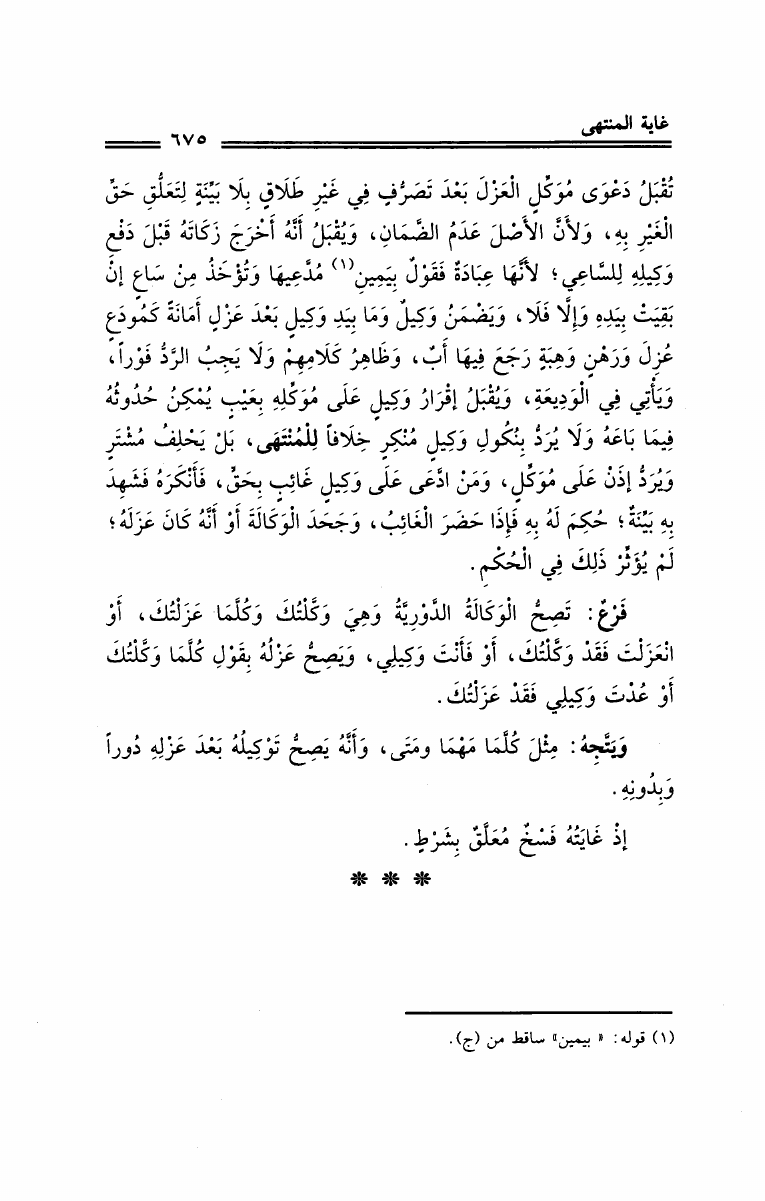 غاية المنتهى
٦٧٥
تُقْبَلُ دَعْوَى مُوَكِّلٍ الْعَزْلَ بَعْدَ تَصَرُّفٍ فِي غَيْرِ طَلَاقٍ بِلَا بَيِّنَةٍ لِتَعَلُّقِ حَقِّ
الْغَيْرِ بِهِ، وَلأَنَّ الأَصْلَ عَدَمُ الضَّمَانِ، وَيُقْبَلُ أَنَّهُ أَخْرَجَ زَكَاتَهُ قَبْلَ دَفْعِ
وَكِيلِهِ لِلسَّاعِي؛ لأَنَّهَا عِبَادَةٌ فَقَوْلُ بِيَمِينِ(١) مُدَّعِيهَا وَتُؤْخَذُ مِنْ سَاعٍ إنْ
بَقِيَتْ بِيَدِهِ وَإِلَّا فَلَا، وَيَضْمَنُ وَكِيلٌ وَمَا بِيَدِ وَكِيلٍ بَعْدَ عَزْلٍ أَمَانَةً كَمُودَعٍ
عُزِلَ وَرَهْنٍ وَهِبَةٍ رَجَعَ فِيهَا أَبٌ، وَظَاهِرُ كَلَامِهِمْ وَلَا يَجِبُ الرَّدُّ فَوْراً،
وَيَأْتِي فِي الْوَدِيعَةِ، وَيُقْبَلُ إقْرَارُ وَكِيلٍ عَلَى مُوَكِّلِهِ بِعَيْبٍ يُمْكِنُ حُدُوثُهُ
فِيمَا بَاعَهُ وَلَا يُرَدُّ بِنُكُولِ وَكِيلٍ مُنْكِرٍ خِلَافاً لِلْمُنْتَهَى، بَلْ يَحْلِفُ مُشْتَرٍ
وَيُرَدُّ إذَنْ عَلَى مُوَكِّلٍ، وَمَنْ ادَّعَى عَلَى وَكِيلِ غَائِبٍ بِحَقٍّ، فَأَنْكَرَهُ فَشَهِدَ
بِهِ بَيِّنَةٌ؛ حُكِمَ لَهُ بِهِ فَإِذَا حَضَرَ الْغَائِبُ، وَجَحَدَ الْوَكَالَةَ أَوْ أَنَّهُ كَانَ عَزَلَهُ؛
لَمْ يُؤَثِّرْ ذَلِكَ فِي الْحُكْمِ.
فَرْعٌ: تَصِحُّ الْوَكَالَةُ الدَّوْرِيَّةُ وَهِيَ وَكَّلْتُكَ وَكُلَّمَا عَزَلْتُكَ، أَوْ
انْعَزَلْتَ فَقَدْ وَكَّلْتُكَ، أَوْ فَأَنْتَ وَكِيلِي، وَيَصِحُّ عَزْلُهُ بِقَوْلِ كُلَّمَا وَكَّلْتُكَ
أَوْ عُدْتَ وَكِيلِي فَقَدْ عَزَلْتُكَ.
وَيَتَّجِهُ: مِثْلَ كُلَّمَا مَهْمَا ومَتَى، وَأَنَّهُ يَصِحُّ تَوْكِيلُهُ بَعْدَ عَزْلِهِ دُوراً
وَبِدُونِهِ.
إذْ غَايَتُهُ فَسْخٌ مُعَلَّقٌ بِشَرْطٍ.
* * *
(١) قوله: «بيمين» ساقط من (ج).